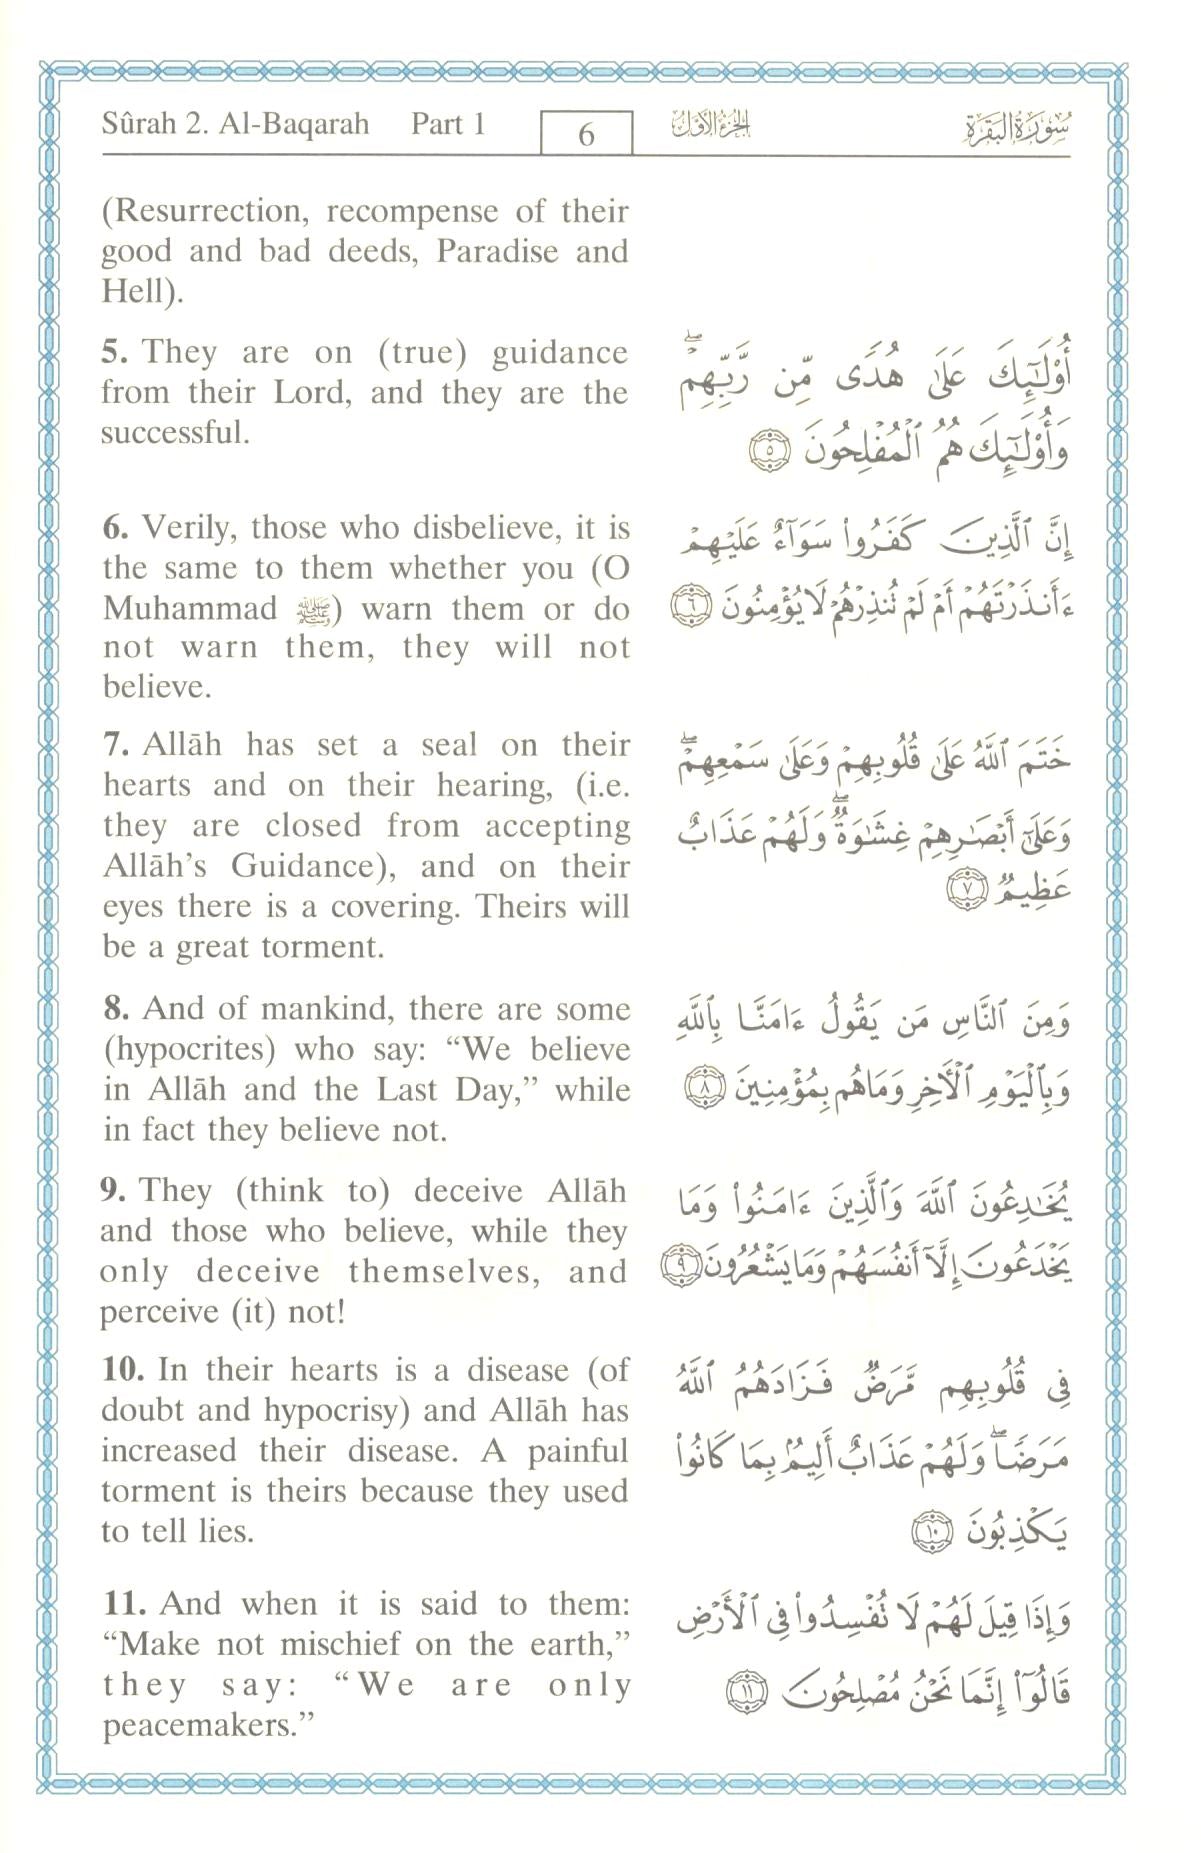 Sûrah 2. Al-Baqarah Part 1
6
الجزء الأول
سورة البقرة
(Resurrection, recompense of their
good and bad deeds, Paradise and
Hell).
5. They are on (true) guidance
from their Lord, and they are the
successful.
أُوْلَـٰٓئِكَ عَلَىٰ هُدًى مِّن رَّبِّهِمْ ۖ
وَأُوْلَـٰٓئِكَ هُمُ ٱلْمُفْلِحُونَ ۝٥
6. Verily, those who disbelieve, it is
the same to them whether you (O
Muhammad ﷺ) warn them or do
not warn them, they will not
believe.
إِنَّ ٱلَّذِينَ كَفَرُوا۟ سَوَآءٌ عَلَيْهِمْ
ءَأَنذَرْتَهُمْ أَمْ لَمْ تُنذِرْهُمْ لَا يُؤْمِنُونَ ۝٦
7. Allāh has set a seal on their
hearts and on their hearing, (i.e.
they are closed from accepting
Allāh’s Guidance), and on their
eyes there is a covering. Theirs will
be a great torment.
خَتَمَ ٱللَّهُ عَلَىٰ قُلُوبِهِمْ وَعَلَىٰ سَمْعِهِمْ ۖ
وَعَلَىٰٓ أَبْصَـٰرِهِمْ غِشَـٰوَةٌ ۖ وَلَهُمْ عَذَابٌ
عَظِيمٌ ۝٧
8. And of mankind, there are some
(hypocrites) who say: “We believe
in Allāh and the Last Day,” while
in fact they believe not.
وَمِنَ ٱلنَّاسِ مَن يَقُولُ ءَامَنَّا بِٱللَّهِ
وَبِٱلْيَوْمِ ٱلْأَخِرِ وَمَا هُم بِمُؤْمِنِينَ ۝٨
9. They (think to) deceive Allāh
and those who believe, while they
only deceive themselves, and
perceive (it) not!
يُخَـٰدِعُونَ ٱللَّهَ وَٱلَّذِينَ ءَامَنُوا۟ وَمَا
يَخْدَعُونَ إِلَّآ أَنفُسَهُمْ وَمَا يَشْعُرُونَ ۝٩
10. In their hearts is a disease (of
doubt and hypocrisy) and Allāh has
increased their disease. A painful
torment is theirs because they used
to tell lies.
فِى قُلُوبِهِم مَّرَضٌ فَزَادَهُمُ ٱللَّهُ
مَرَضًا ۖ وَلَهُمْ عَذَابٌ أَلِيمٌۢ بِمَا كَانُوا۟
يَكْذِبُونَ ۝١٠
11. And when it is said to them:
“Make not mischief on the earth,”
they say: “We are only
peacemakers.”
وَإِذَا قِيلَ لَهُمْ لَا تُفْسِدُوا۟ فِى ٱلْأَرْضِ
قَالُوٓا۟ إِنَّمَا نَحْنُ مُصْلِحُونَ ۝١١